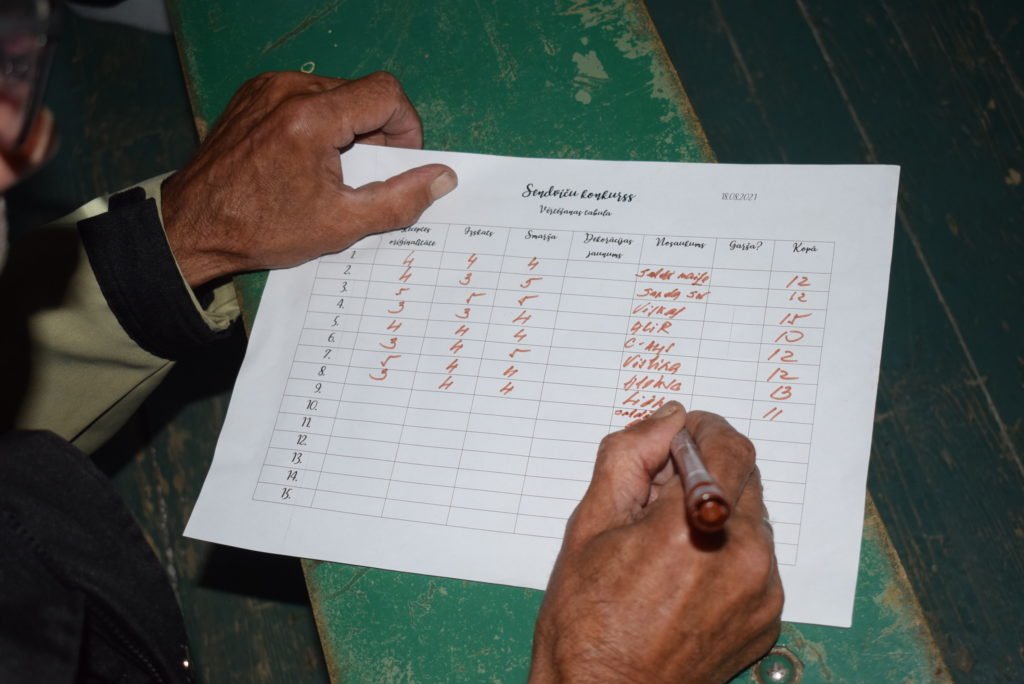 Sendviču konkurss 18.08.2021
Vērtēšanas tabula
Receptes Izskats Smarža Dekorācijas Nosaukums Garša? Kopā
oriģinalitāte jaunums
1. 4 4 4 12
2. 4 3 5 12
3. 5 5 5 15
4. 3 3 4 10
5. 4 4 4 12
6. 3 4 5 12
7. 5 4 4 13
8. 3 4 4 11
9.
10.
11.
12.
13.
14.
15.